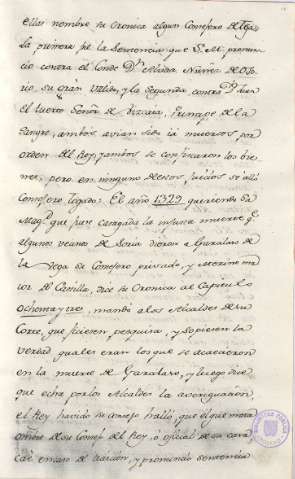 ellas nombre su Cronica algun Consejero Letra-
la primera fue la Sentencia que S. M. pronun-
cio contra el Conde Dⁿ Alvaro Nuñez de Oso-
rio, su gran Valido, y la segunda contra Dⁿ Juan
el tuerto Señor de Vizcaia, Principe de la
Sangre, ambos avian sido ia muertos por
orden del Rey, y ambos se confiscaron los bie-
nes, pero en ninguno de esos juicios se alló
Consejero Togado: El año 1329 queriendo Su
Magᵈ que fuese castigada la injusta muerte qᵉ
algunos vecinos de Soria dieron a Garcilaso de
la Vega su Consejero privado, y Merino ma-
ior de Castilla, dice su Cronica al Capitulo
ochenta y tres, mandó a los Alcaldes de su
Corte, que ficiesen pesquisa, y sopiesen la
verdad quales eran los que se acaecieron
en la muerte de Garcilaso, y luego dice
que echa por los Alcaldes la averiguacion,
el Rey havido su consejo halló, que el que matara
ome de su Consejo del Rey, ó oficial de su casa
caé en caso de traicion, y pronunció sentencia